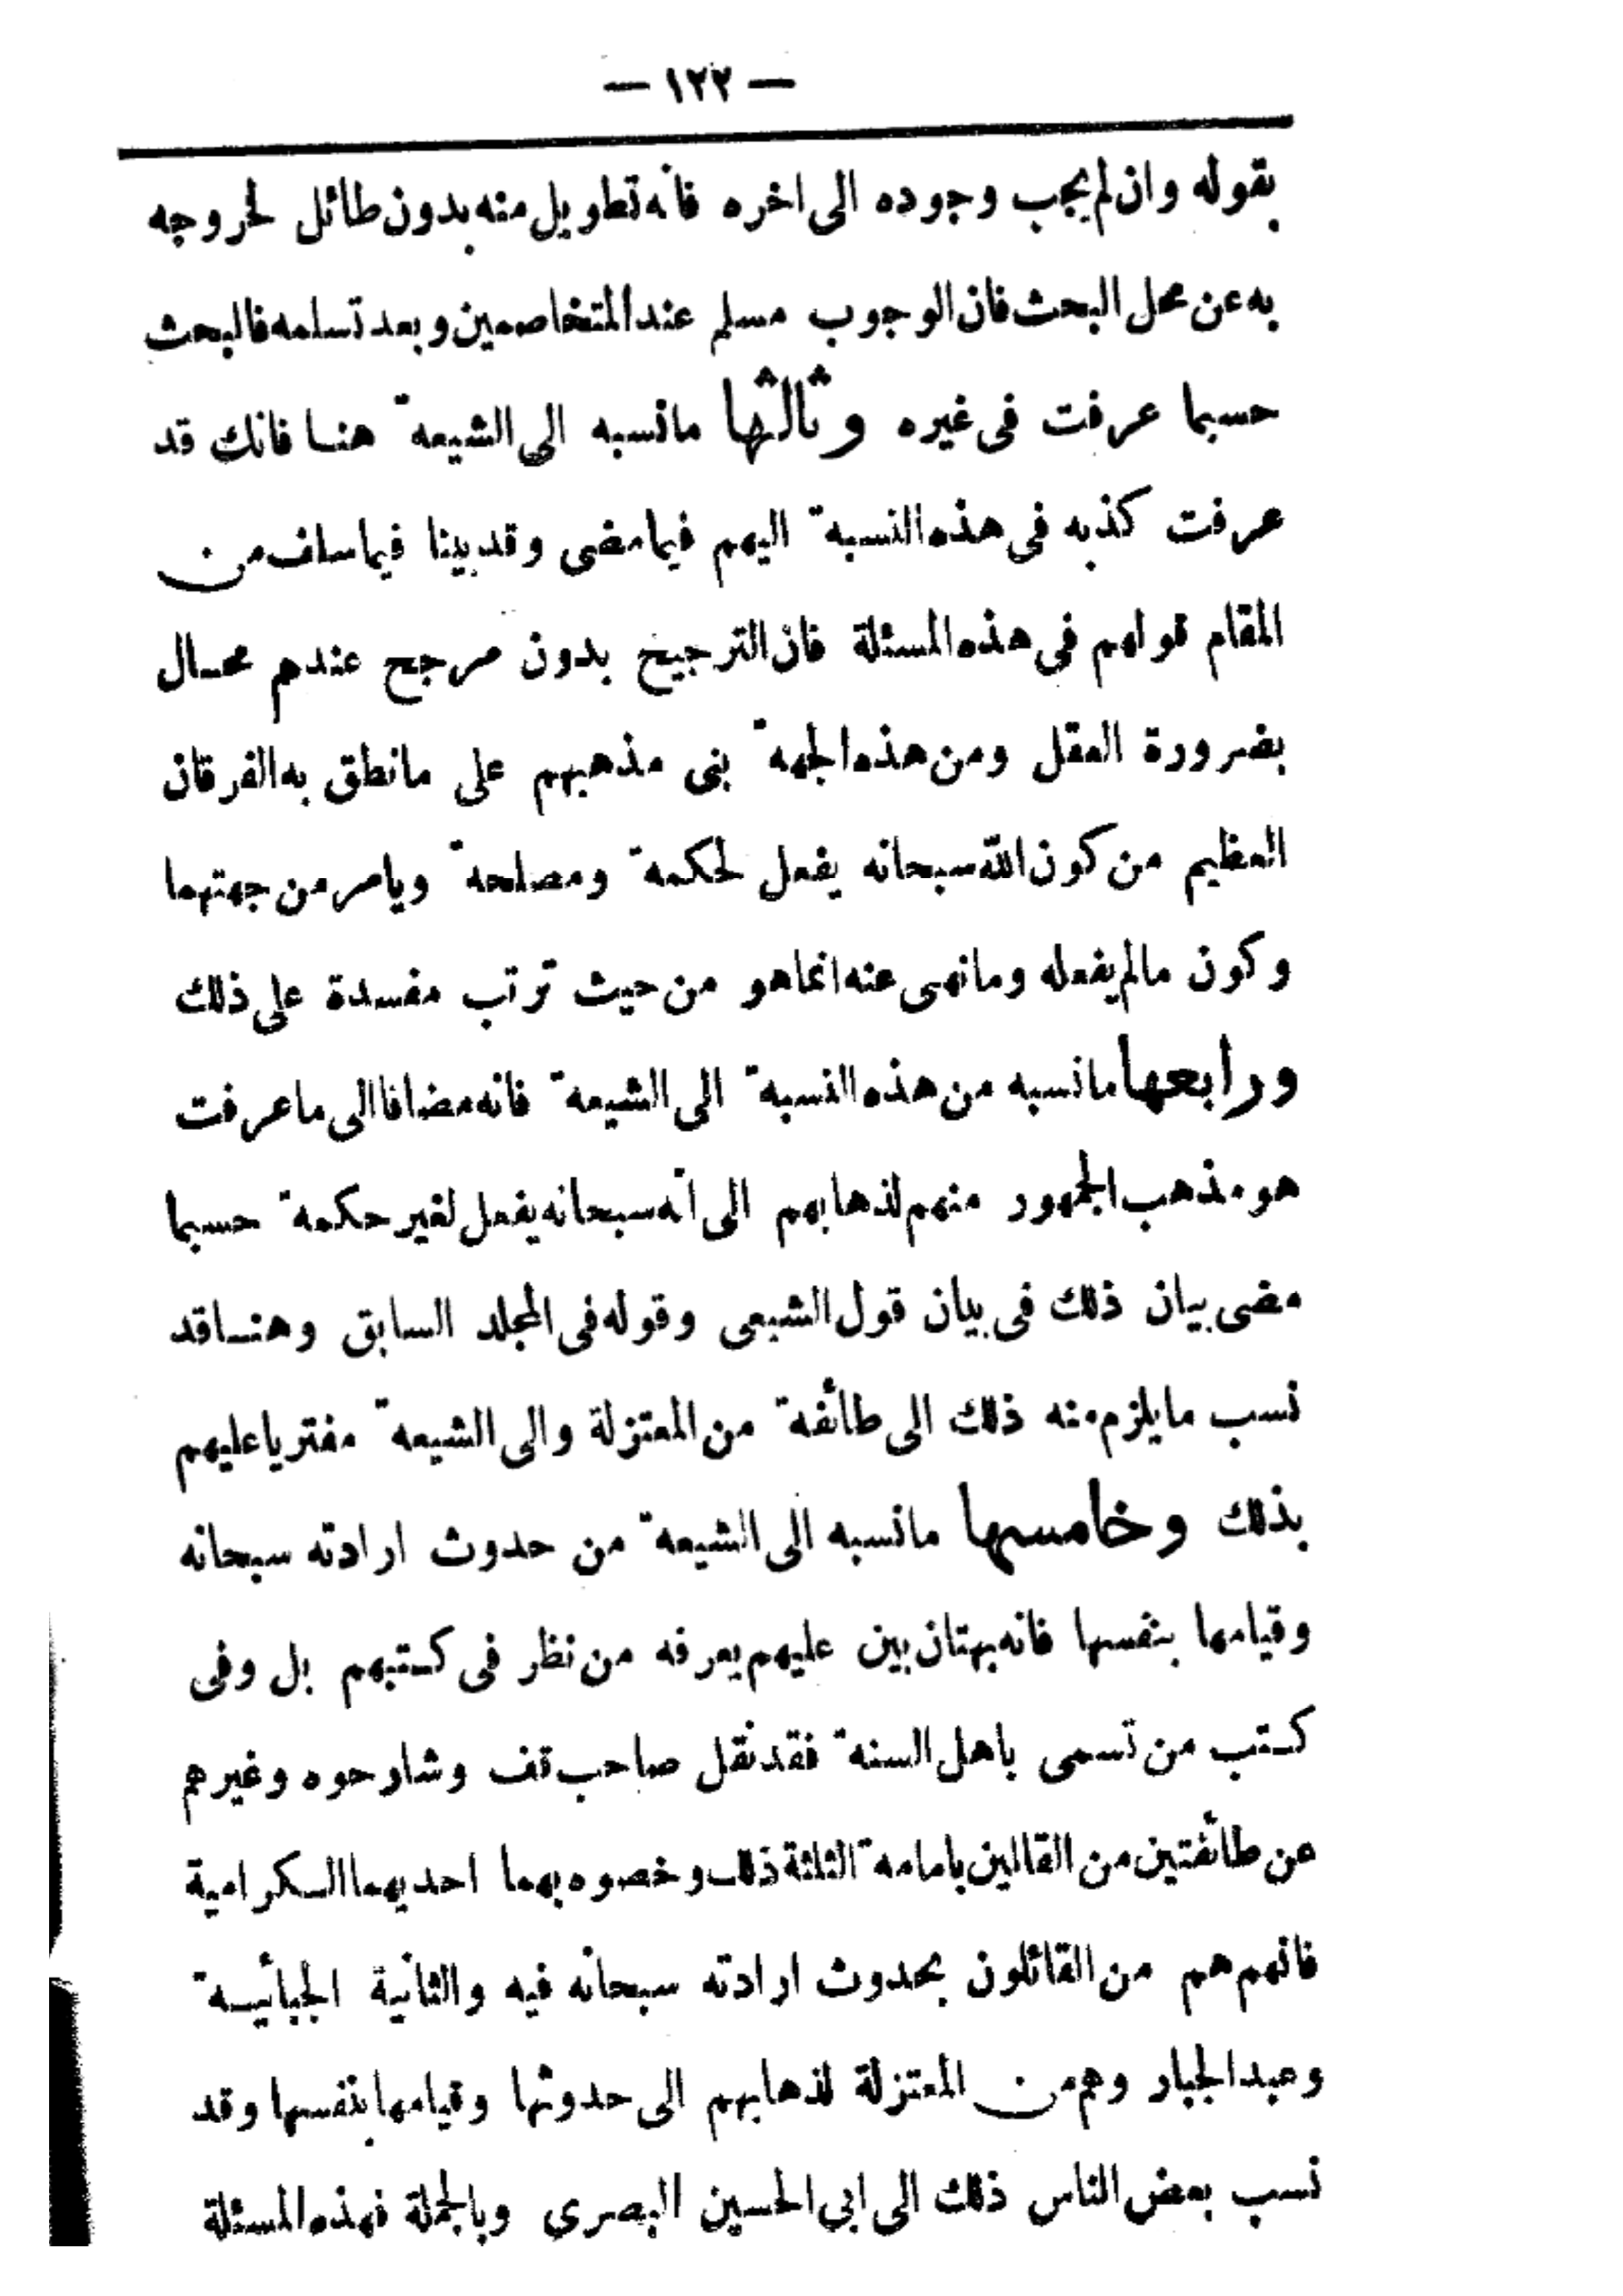 — ١٢٢ —
بقوله وان لم يجب وجوده الى اخره فانه تطويل منه بدون طائل لخروجه
به عن محل البحث فان الوجوب مسلم عند المتخاصمين وبعد تسلمه فالبحث
حسبما عرفت فى غيره وثالثها مانسبه الى الشيعة هنا فانك قد
عرفت كذبه فى هذه النسبة اليهم فيما مضى وقد بينا فيما سلف من
المقام قولهم فى هذه المسئلة فان الترجيح بدون مرجح عندهم محال
بضرورة العقل ومن هذه الجهة بنى مذهبهم على مانطق به الفرقان
العظيم من كون الله سبحانه يفعل لحكمة ومصلحة ويامر من جهتهما
وكون مالم يفعله ومانهى عنه انماهو من حيث ترتب مفسدة على ذلك
ورابعها مانسبه من هذه النسبة الى الشيعة فانه مضافا الى ماعرفت
هو مذهب الجمهور منهم لذهابهم الى انه سبحانه يفعل لغير حكمة حسبما
مضى بيان ذلك فى بيان قول الشيعى وقوله فى المجلد السابق وهنا قد
نسب مايلزم منه ذلك الى طائفة من المعتزلة والى الشيعة مفتريا عليهم
بذلك وخامسها مانسبه الى الشيعة من حدوث ارادته سبحانه
وقيامها بنفسها فانه بهتان بين عليهم يعرفه من نظر فى كتبهم بل وفى
كتب من تسمى باهل السنة فقد نقل صاحب قف وشارحوه وغيرهم
عن طائفتين من القالين بامامة الثلثة ذلك وخصوه بهما احديهما الكرامية
فانهم هم من القائلون بحدوث ارادته سبحانه فيه والثانية الجبائية
وعبد الجبار وهم من المعتزلة لذهابهم الى حدوثها وقيامها بنفسها وقد
نسب بعض الناس ذلك الى ابى الحسين البصري وبالجملة فهذه المسئلة